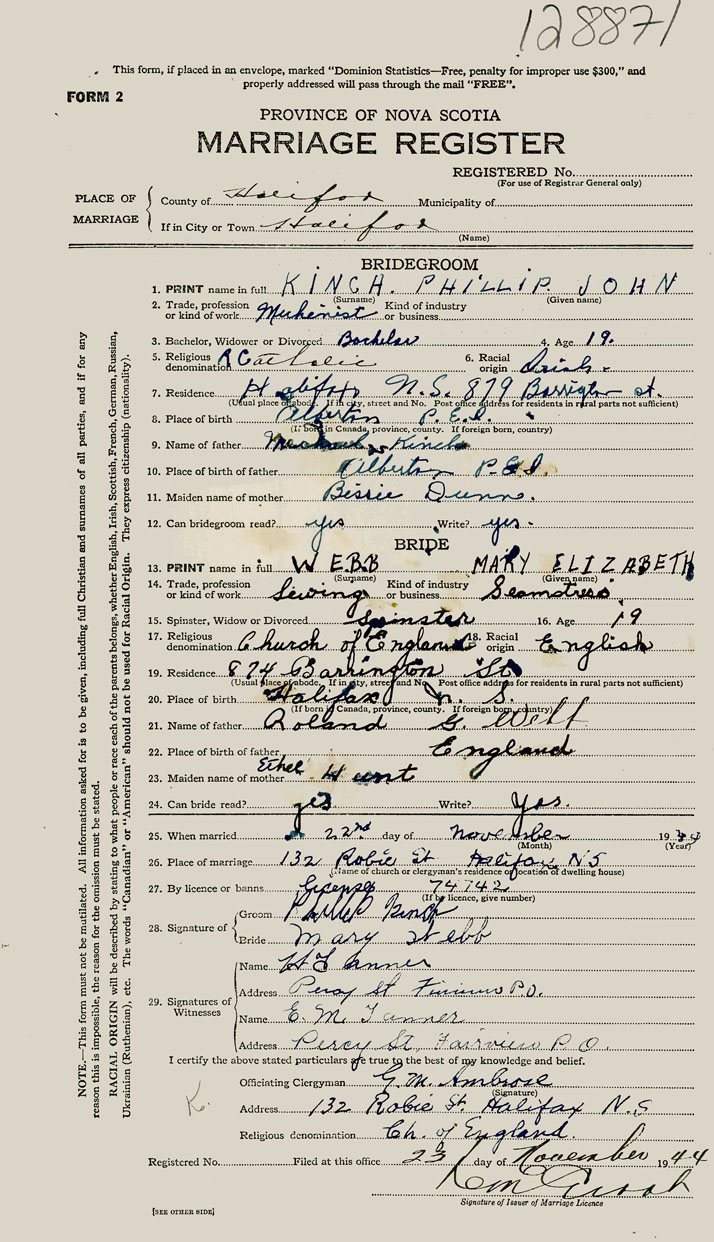 128871
This form, if placed in an envelope, marked "Dominion Statistics—Free, penalty for improper use $300," and
properly addressed will pass through the mail "FREE".
FORM 2
PROVINCE OF NOVA SCOTIA
MARRIAGE REGISTER
REGISTERED No.
(For use of Registrar General only)
PLACE OF MARRIAGE
County of Halifax Municipality of
If in City or Town Halifax
(Name)
BRIDEGROOM
1. PRINT name in full KINCH. PHILLIP JOHN
(Surname) (Given name)
2. Trade, profession or kind of work Muhenist Kind of industry or business
3. Bachelor, Widower or Divorced Bachelor 4. Age 19.
5. Religious denomination R Catholic 6. Racial origin Irish.
7. Residence Halifax N.S. 879 Barrington st.
(Usual place of abode. If in city, street and No. Post office address for residents in rural parts not sufficient)
8. Place of birth Alberton P.E.I.
(If born in Canada, province, county. If foreign born, country)
9. Name of father Michael Kinch
10. Place of birth of father Alberton P.E.I.
11. Maiden name of mother Bissie Dunn.
12. Can bridegroom read? yes Write? yes.
BRIDE
13. PRINT name in full WEBB MARY ELIZABETH
(Surname) (Given name)
14. Trade, profession or kind of work Sewing Kind of industry or business Seamstress
15. Spinster, Widow or Divorced Spinster 16. Age 19
17. Religious denomination Church of England 18. Racial origin English
19. Residence 874 Barrington St.
(Usual place of abode. If in city, street and No. Post office address for residents in rural parts not sufficient)
20. Place of birth Halifax N. S.
(If born in Canada, province, county. If foreign born, country)
21. Name of father Roland G. Webb
22. Place of birth of father England
23. Maiden name of mother Ethel Hunt
24. Can bride read? yes Write? Yes.
25. When married 22nd day of November 19 44
(Month) (Year)
26. Place of marriage 132 Robie St Halifax NS
(Name of church or clergyman's residence or location of dwelling house)
27. By licence or banns License 74742
(If by licence, give number)
28. Signature of
Groom Phillip Kinch
Bride Mary Webb
29. Signatures of Witnesses
Name H Tanner
Address Percy St Fairview P.O.
Name E. M. Tanner
Address Percy St. Fairview P O.
I certify the above stated particulars are true to the best of my knowledge and belief.
Officiating Clergyman G.M. Ambrose
(Signature)
K.
Address 132 Robie St. Halifax N.S
Religious denomination Ch. of England.
Registered No. Filed at this office 23 day of November 1944
Signature of Issuer of Marriage Licence
[SEE OTHER SIDE]
NOTE.—This form must not be mutilated. All information asked for is to be given, including full Christian and surnames of all parties, and if for any
reason this is impossible, the reason for the omission must be stated.
RACIAL ORIGIN will be described by stating to what people or race each of the parents belongs, whether English, Irish, Scottish, French, German, Russian,
Ukrainian (Ruthenian), etc. The words "Canadian" or "American" should not be used for Racial Origin. They express citizenship (nationality).